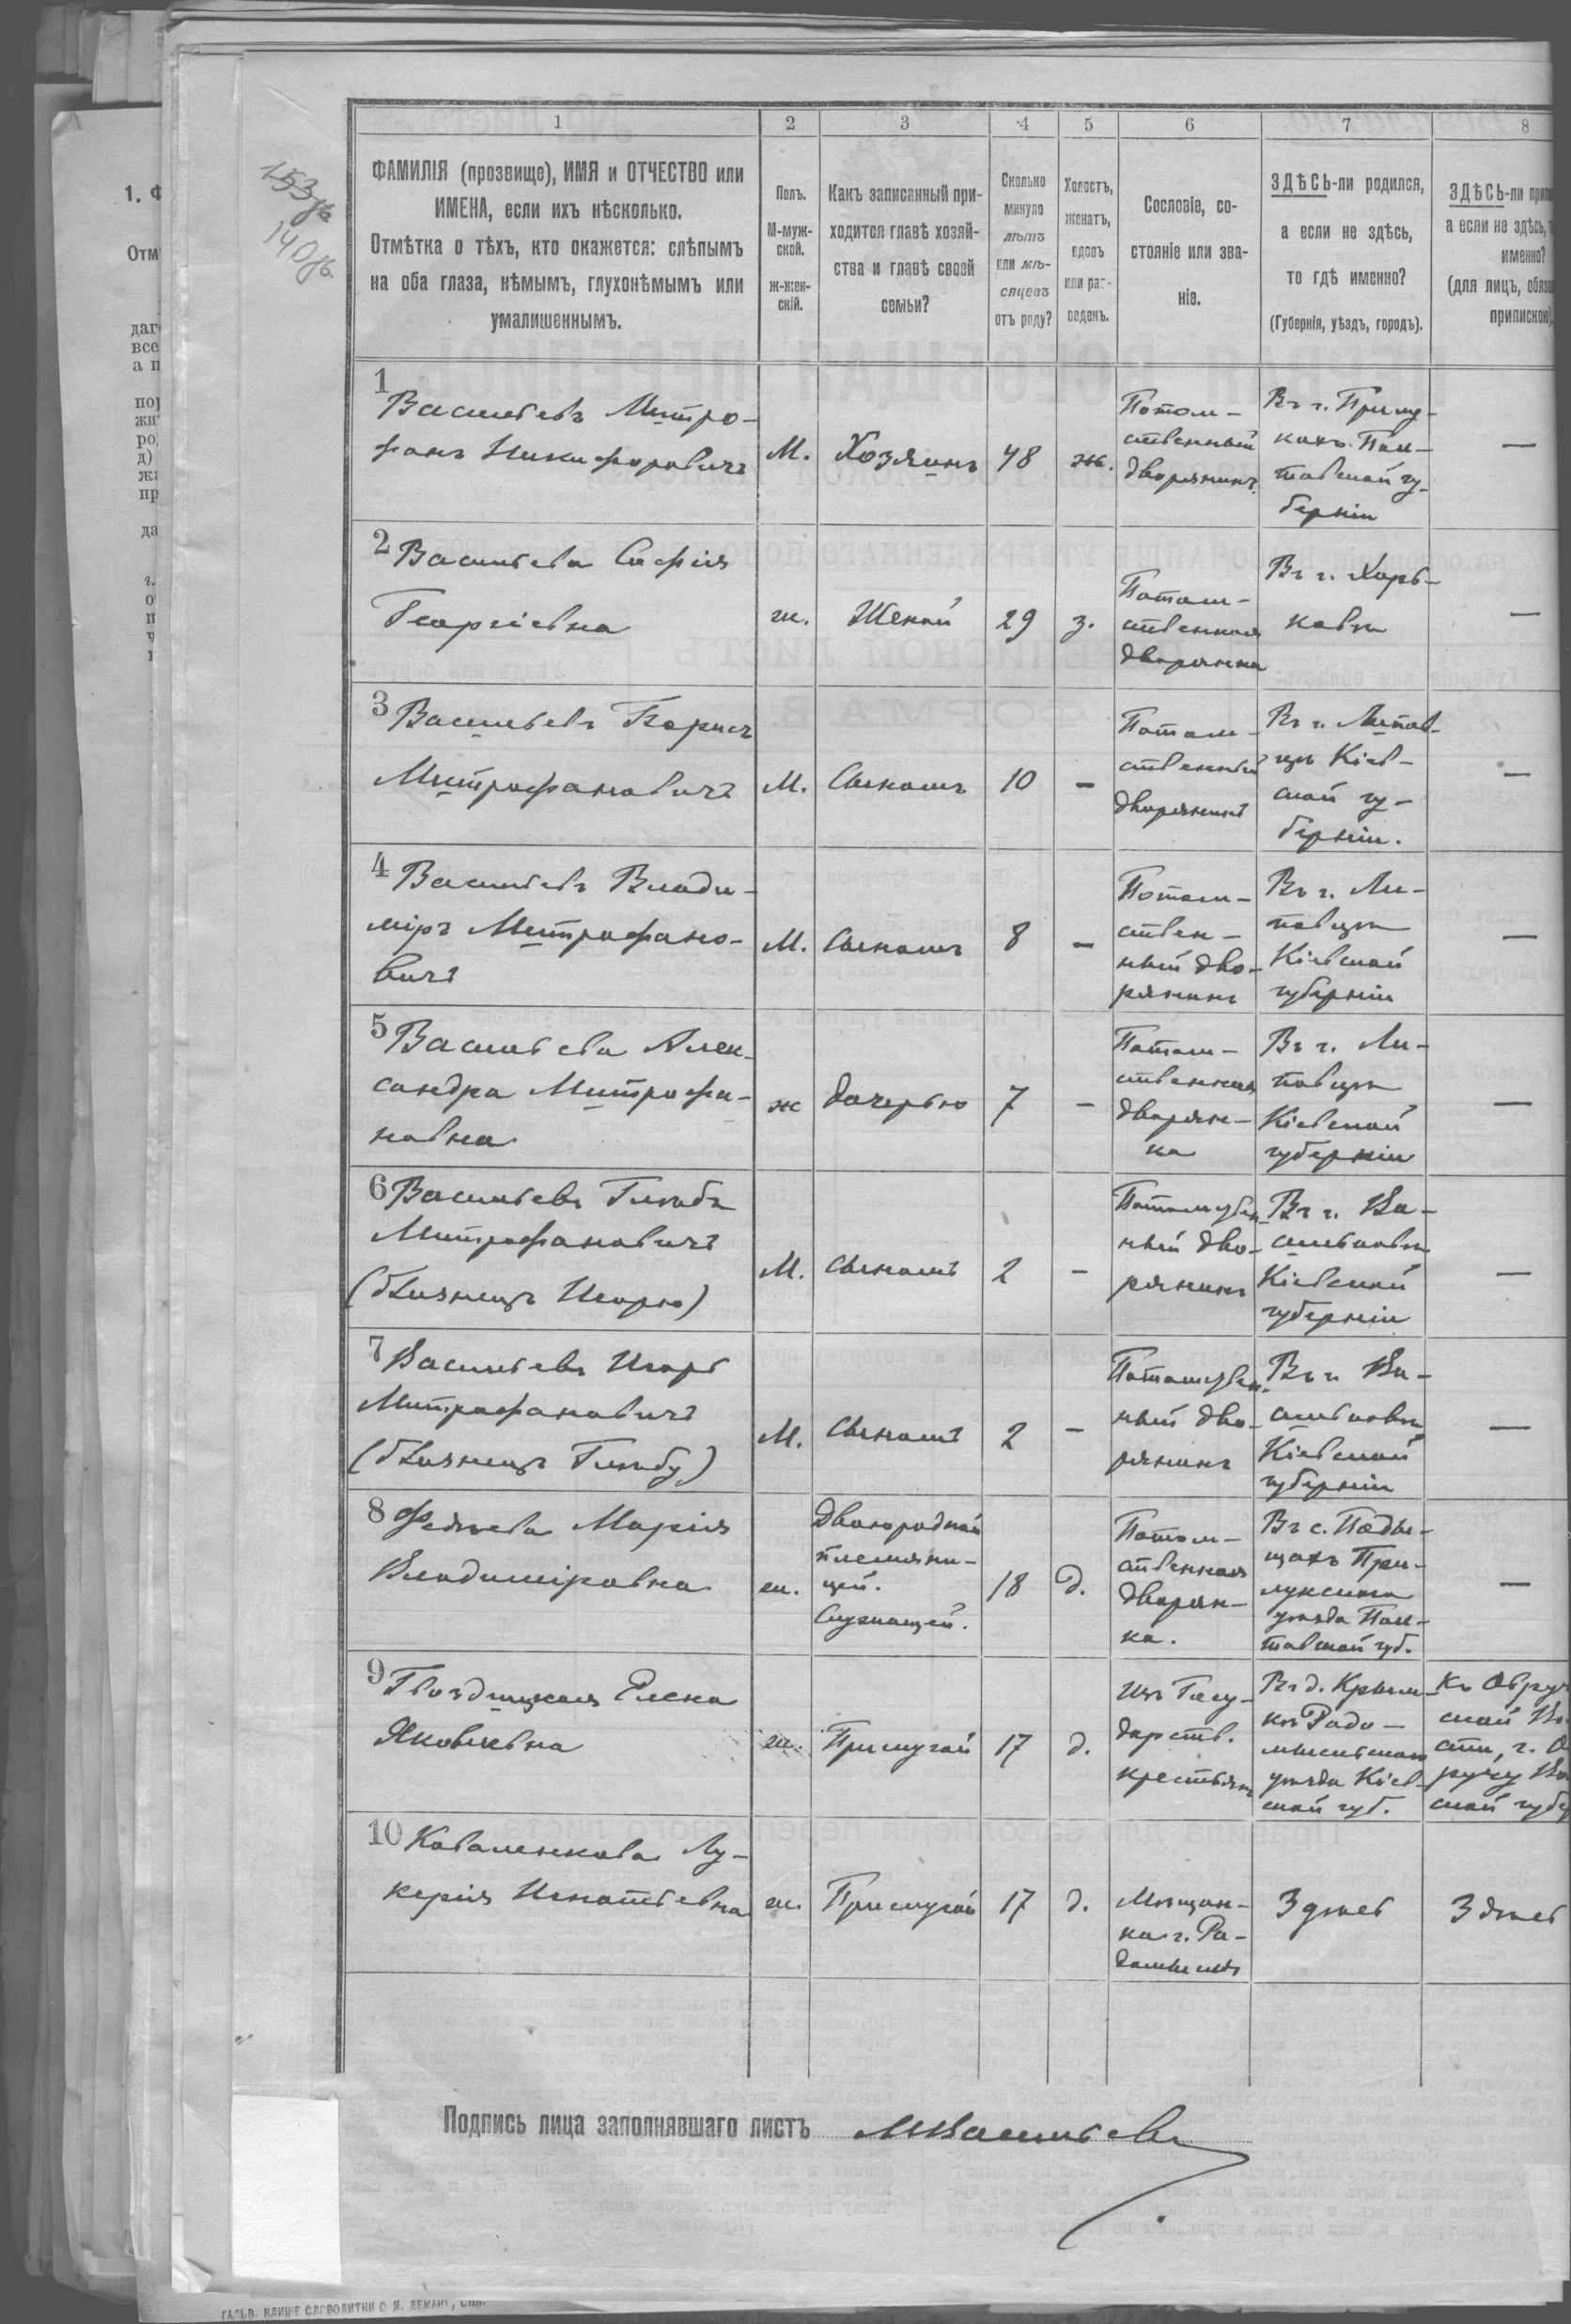 1 2 3 4 5 6 7 8
ФАМИЛІЯ (прозвище), ИМЯ и ОТЧЕСТВО или
ИМЕНА, если ихъ нѣсколько.
Отмѣтка о тѣхъ, кто окажется: слѣпымъ
на оба глаза, нѣмымъ, глухонѣмымъ или
умалишеннымъ.
Полъ.
М-муж-
ской.
ж-жен-
скій.
Какъ записанный при-
ходится главѣ хозяй-
ства и главѣ своей
семьи?
Сколько
минуло
лѣтъ
или мѣ-
сяцевъ
отъ роду?
Холостъ,
женатъ,
вдовъ
или раз-
веденъ.
Сословіе, со-
стояніе или зва-
ніе.
ЗДѢСЬ-ли родился,
а если не здѣсь,
то гдѣ именно?
(Губернія, уѣздъ, городъ).
ЗДѢСЬ-ли
а если не здѣсь,
именно?
(для лицъ,
припискою)
153
140
1
Васильевъ Митро-
фанъ Никифоровичъ
М.
Хозяинъ
48
ж.
Потом-
ственный
дворянинъ.
Въ г. Прилу-
кахъ Пол-
тавской гу-
берніи
—
2 Васильева Софія
Георгіевна
ж.
Женой
29
з.
Потом-
ственная
дворянка
Въ г. Харь-
ковѣ
—
3 Васильевъ Борисъ
Митрофановичъ
М.
Сыномъ
10
-
Потом-
ственный
дворянинъ
Въ г. Липов-
цѣ Кіев-
ской гу-
берніи.
—
4 Васильевъ Влади-
міръ Митрофано-
вичъ
М.
сыномъ
8
-
Потом-
ствен-
ный дво-
рянинъ
Въ г. Ли-
повцѣ
Кіевской
губерніи
—
5 Васильева Алек-
сандра Митрофа-
новна
ж
дочерью
7
-
Потом-
ственная
дворян-
ка
Въ г. Ли-
повцѣ
Кіевской
губерніи
—
6 Васильевъ Глѣбъ
Митрофановичъ
(близнецъ Игорю)
М.
сыномъ
2
-
Потомствен-
ный дво-
рянинъ
Въ г. Ва-
сильковѣ
Кіевской
губерніи
—
7 Васильевъ Игорь
Митрофановичъ
(близнецъ Глѣбу)
М.
сыномъ
2
-
Потомствен-
ный дво-
рянинъ
Въ г. Ва-
сильковѣ
Кіевской
губерніи
—
8 Марія
Владиміровна
ж.
Двоюродной
племянни-
цей.
Служащей.
18
д.
Потом-
ственная
дворян-
ка.
Въ с. Поди-
щахъ При-
лукскаго
уѣзда Пол-
тавской губ.
—
9 Гвоздицкая Елена
Яковлевна
ж.
Прислугой
17
д.
Изъ Госу-
дарств.
крестьянъ
Въ д. Крым-
кѣ Радо-
мысльскаго
уѣзда Кіев-
ской губ.
Къ Овруч
ской
10 Коваленкова Лу-
керія Игнатьевна
ж.
Прислугой
17
д.
Мѣщан-
ка г. Ра-
домысль
Здѣсь
Здѣсь
Подпись лица заполнявшаго листъ МВасильевъ
ГАЛЬВ. КЛИШЕ СЛОВОЛИТНИ О. И. ЛЕМАНЪ, СПБ.